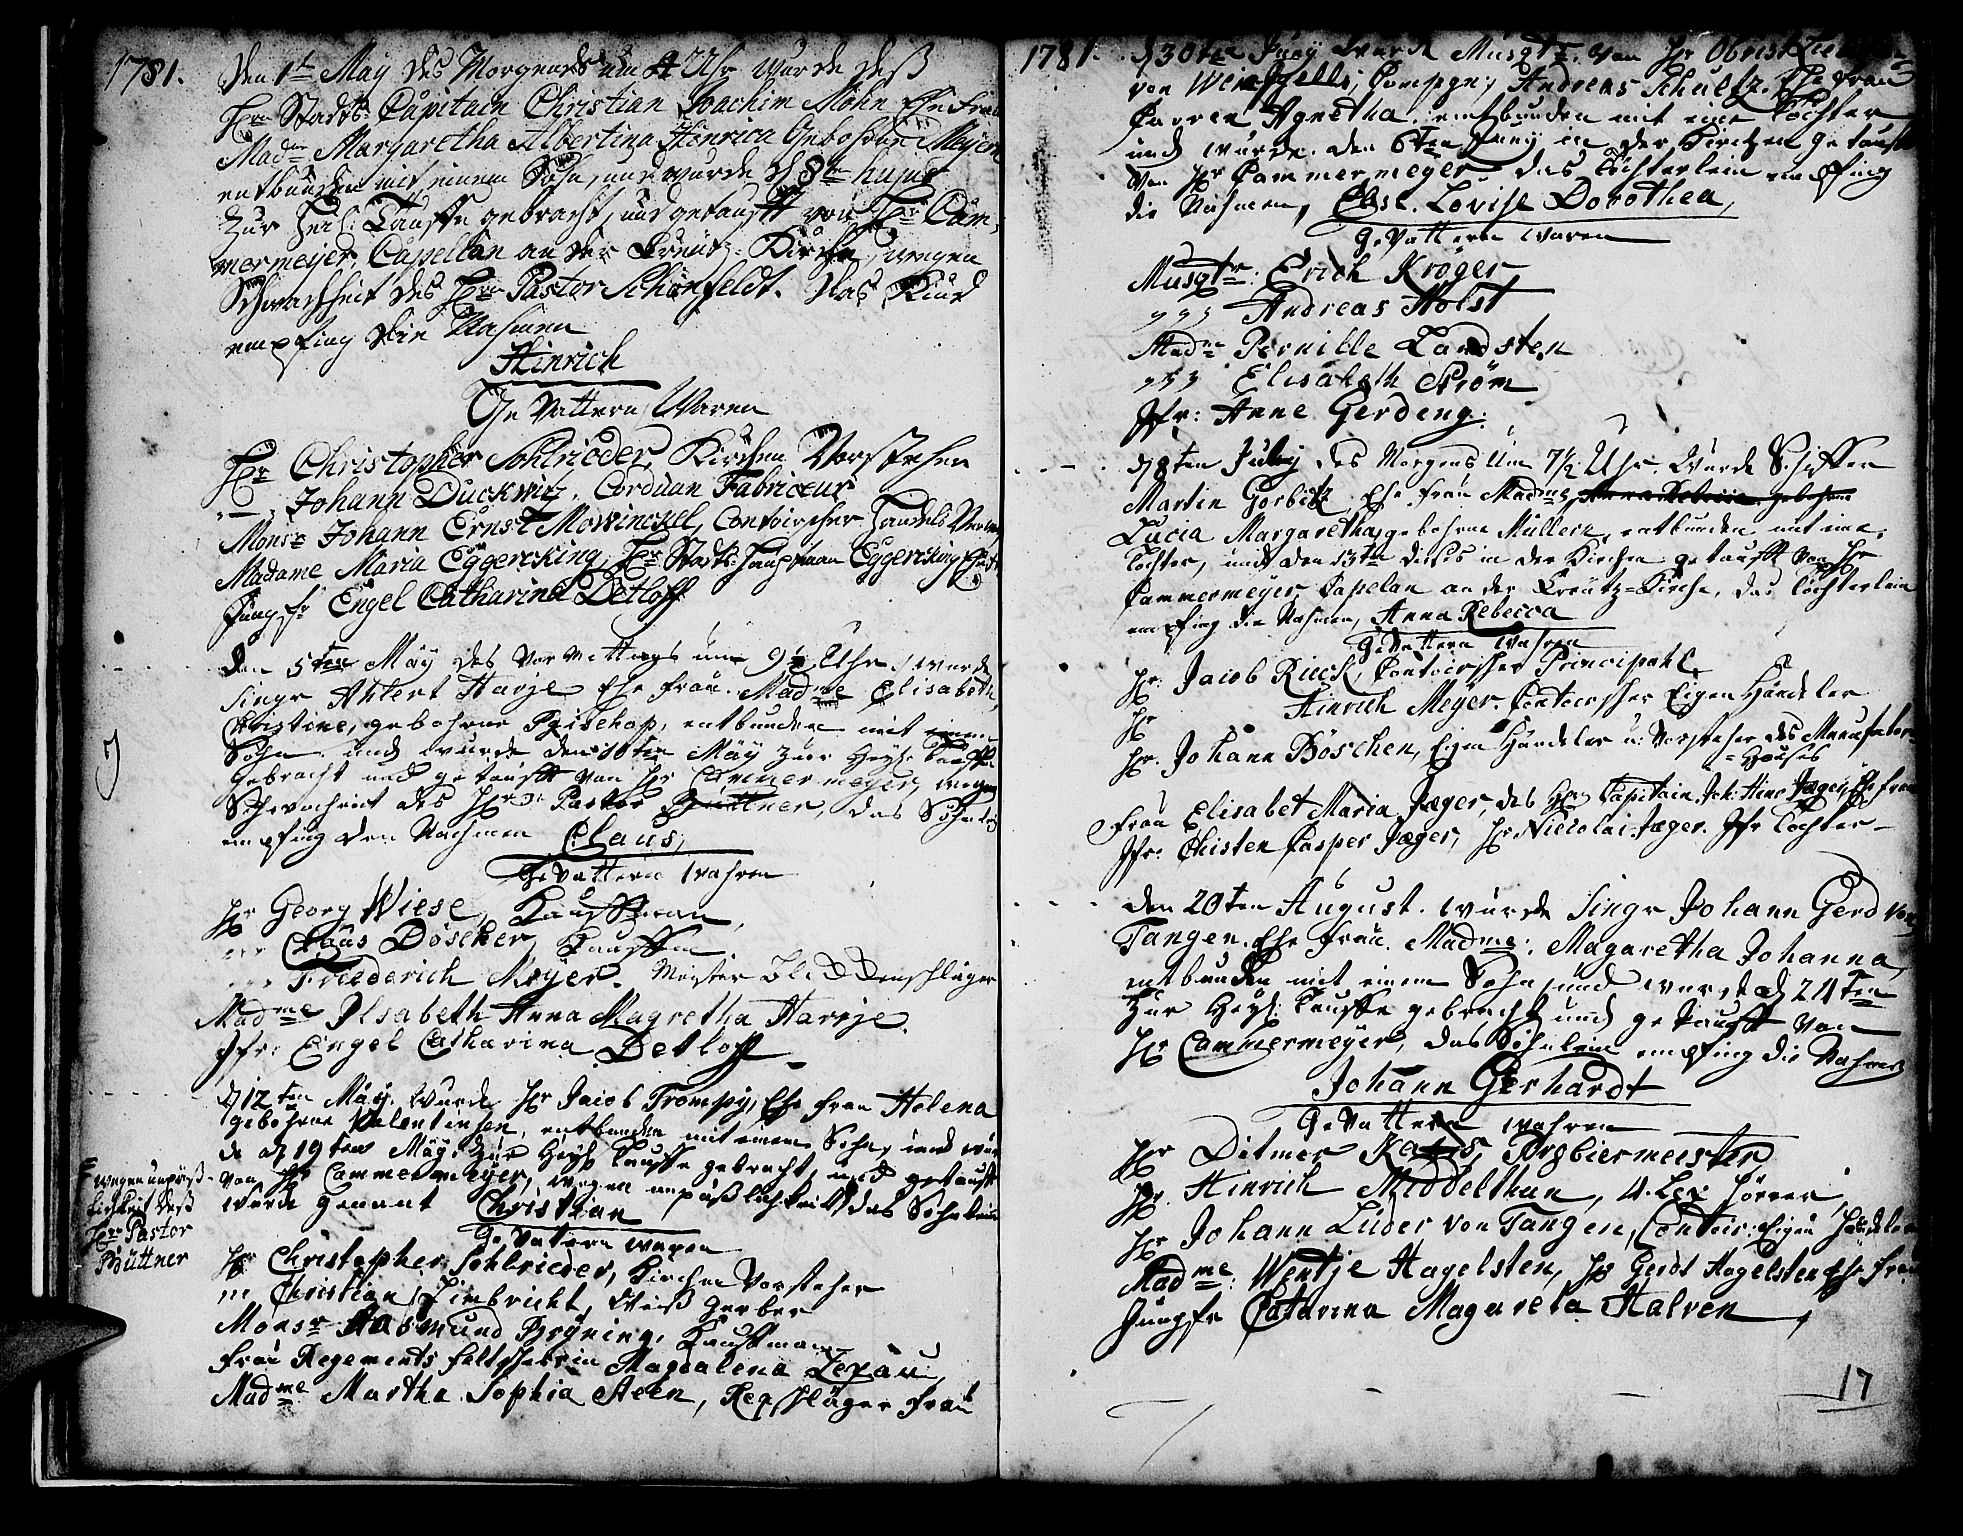 1781. Den 1t May des Morgens um 4 Uhr wurde deß
Hrn Stadts-Capitain Christian Joachim Mohn Ehe Frau
Madm Margaretha Albertina Hinrica Gebohrne Meyern
entbunden mit einem Sohn, und wurde d 8ten hujus
zur Heil: Tauffe gebracht, und getaufft von Hr Cam-
mermeyer, Capellan an der Creütz-Kirche, wegen
Schwachheit des Hrn Pastor Schönfeldt. Das Kind
empfing die Nahmen
Hinrich
Gevattern Waren
Hr Christopher Sohlrieder, Kirchen Vorsteher
Johann Duckwitz, Corduan Fabriceur
Monsr Johann Ernst Mowinckel, Contoirscher Handels
Madame Maria Eggereking, Hr Stadts-Hauptman Eggereking
Jungfr Engel Catharina Detloff
Den 5ten Máÿ des Vormittags um 9½ Uhr, wurde
Singr Ahlert Harje Ehe Frau. Madme Elisabeth
Christine, gebohrne Bischop, entbunden mit einem
Sohn und wurde den 11ten Máÿ zur Heyl: Tauffe
Gebracht und getaufft von Hr Cammermeyer, wegen
Schwachheit des Hrn Pastor Büttner, das Söhnlein
empfing den Nahmen Claus,
Gevattern wahren
Hr Georg Wiese, Kauffman,
Claus Döscher, Kauffm
Friederich Meyer. Meister
Madme Ilsabeth Anna Magretha Harrje.
Jfr: Engel Catharina Detloff
d 12ten Máÿ. wurde Hr Jacob Trompy, Ehe Frau Helena
gebohrne Valentinsen, entbunden mit einem Sohn, und wur
de d 19ten Máÿ. zur Heyl Tauffe gebracht, und getaufft
von Hr Cammermeyer, wegen unpäßlichkeit das Söhnlein
wurde genant Christian
wegen unpäß-
lichkeit deß
Hrn Pastor
Büttner
Gevattern waren
Hr Christopher Sohlrieder, Kirchen Vorsteher
Christian Limbricht, Weiß Gerber
Monsr Aasmund Brÿning, Kauffman
Frau Regements Feltscherin Magdalena Lexau
Madme Martha Sophia Steen, Repschläger Frau
1781. d 30ten Juny wurde Musqtr. von Hr Obrist
von Compgn; Andreas Schultz. Ehe Frau
Agnetha. entbunden mit eine Tochter
und wurde den 6ten in der Kirchen getauft
von Hr Cammermeyer das Töchterlein empfing
die Nahmen, Lovise Dorothea,
Gevattern waren
Musqtr: Erich Kröger
Andreas Holst
Madm Pernille Landsten
Elisabeth Strøm
Jfr: Anne Gerdeng.
d 8ten July des Morgens um 7½ Uhr. Wurde Schiffer
Martin Gorbitz, Ehe Frau Madme gebohrne
Lucia Margaretha, gebohrne Müllern, entbunden mit eine
Tochter, und den 13te dieses in der Kirchen getaufft von Hr
Cammermeyer, Capelan an der Creütz-Kirche, das Töchterlein
empfing die Nahmen, Anna Rebecca
Gevattern wahren
Hr. Jacob Rieck, Contoirscher Principahl
Hr Hinrich Meÿer. Contoirscher Eigen Händeler
Hr. Johann Böschen, Eigen Händeler u: Vorsteher des Manufactur
=Houses
Frau Elisabet Maria Jæger, des Hrn Capitain Joh: Hinr Jæger, Ehe Frau
Jfr: Christen Casper Jæger, Hr Nicolai Jæger. Jfr Tochter
Den 20ten August. Wurde Singr Johann Gerd von
Tangen. Ehe Frau. Madme: Magaretha Johanna,
entbunden mit einem Sohn, und wurde d 24ten
zur Heyl: Tauffe gebracht und getaufft von
Hr Cammermeÿer, das Söhnlein empfing die Nahmen
Johann Gerhardt
Gevattern wahren
Hr Ditmer Kahrs, Brgbiermeister
Hr. Hinrich Middelthun,
Hr Johann Lüder von Tangen, Contoir: Eigen Händeler
Madme: Wentje Hagelsten, Hr Gerdt Hagelsten Ehe Frau
Jungfr Catarina Magareta Halven
17